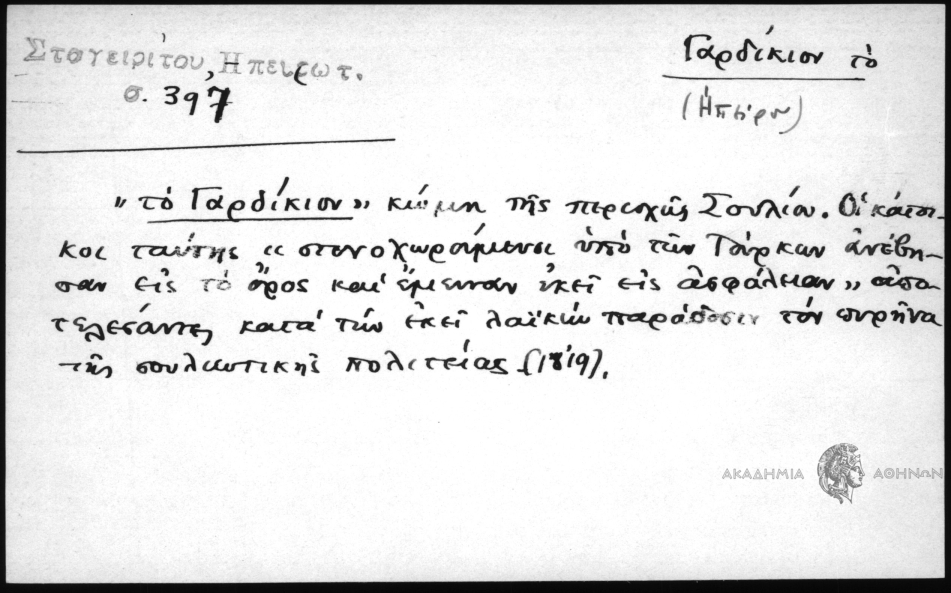 Σταγειρίτου, Ηπειρωτ.
σ. 397
Γαρδίκιον τὸ
(Ἠπείρου)
"τὸ Γαρδίκιον" κώμη τῆς περιοχῆς Σουλίου. Οἱ κάτοι-
κοι ταύτης "στενοχωρούμενοι ὑπὸ τῶν Τούρκων ἀνέβη-
σαν εἰς τὸ ὄρος καὶ ἔμειναν ἐκεῖ εἰς ἀσφάλειαν" ἀπο-
τελέσαντες κατὰ τὴν ἐκεῖ λαϊκὴν παράδοσιν τὸν πυρῆνα
τῆς σουλιωτικῆς πολιτείας (1819).
ΑΚΑΔΗΜΙΑ ΑΘΗΝΩΝ